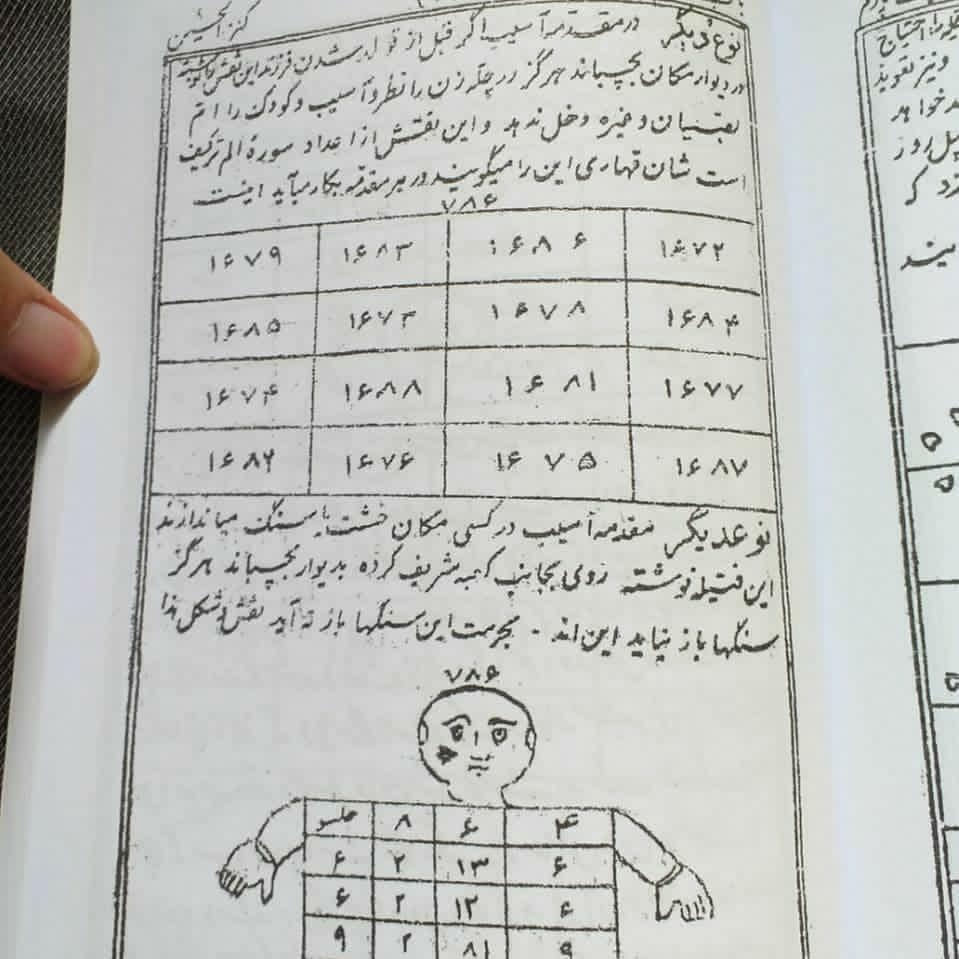 کنز الحسین
نوع دیگر در مقدمه آسیب اگر قبل از تولد شدن فرزند این نقش نوشته
در دیوار مکان بچسباند هرگز در چله زن را نظر و آسیب و کودک را ام
وغیره دخل ندهد و این نقش از اعداد سورهٔ الم ترکیف
است شان قهاری این را میگویند در هر مقدمه بکار میآید اینست
۷۸۶
۱۶۷۹ ۱۶۸۳ ۱۶۸۶ ۱۶۷۲
۱۶۸۵ ۱۶۷۳ ۱۶۷۸ ۱۶۸۴
۱۶۷۴ ۱۶۸۸ ۱۶۸۱ ۱۶۷۷
۱۶۸۲ ۱۶۷۶ ۱۶۷۵ ۱۶۸۷
نوعدیگر مقدمه آسیب در کسی مکان خشت یا سنگ میاندازند
این فتیله نوشته روی بجانب کعبه شریف کرده بدیوار بچسباند هرگز
سنگها باز نیاید این اند - بحرمت این سنگها باز نه آید نقش و شکل هذا
۷۸۶
۸ ۶ ۴
۶ ۲ ۱۳ ۶
۶ ۲ ۱۲ ۶
۹ ۲ ۸۱ ۹
احتیاج
ونیز تعویذ
خواهد
چهل روز
که